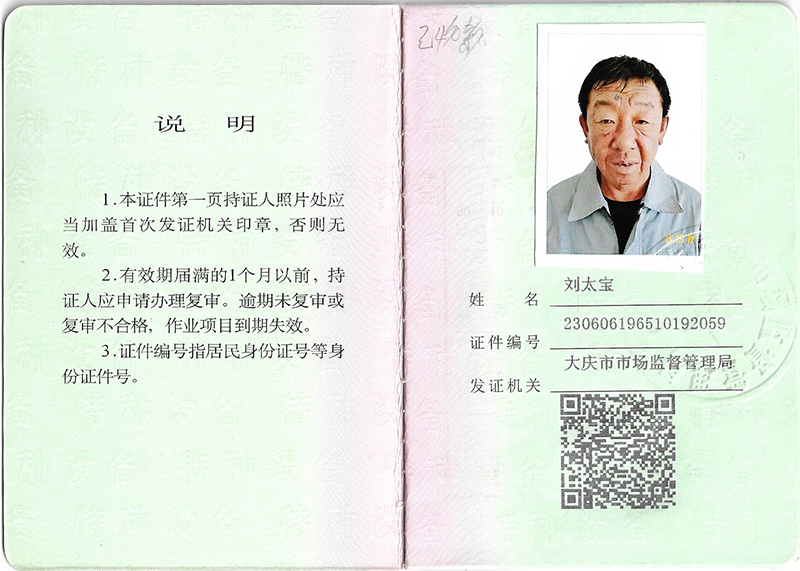 说 明
1.本证件第一页持证人照片处应
当加盖首次发证机关印章，否则无
效。
2.有效期届满的1个月以前，持
证人应申请办理复审。逾期未复审或
复审不合格，作业项目到期失效。
3.证件编号指居民身份证号等身
份证件号。
姓 名 刘太宝
证件编号 230606196510192059
发证机关 大庆市市场监督管理局